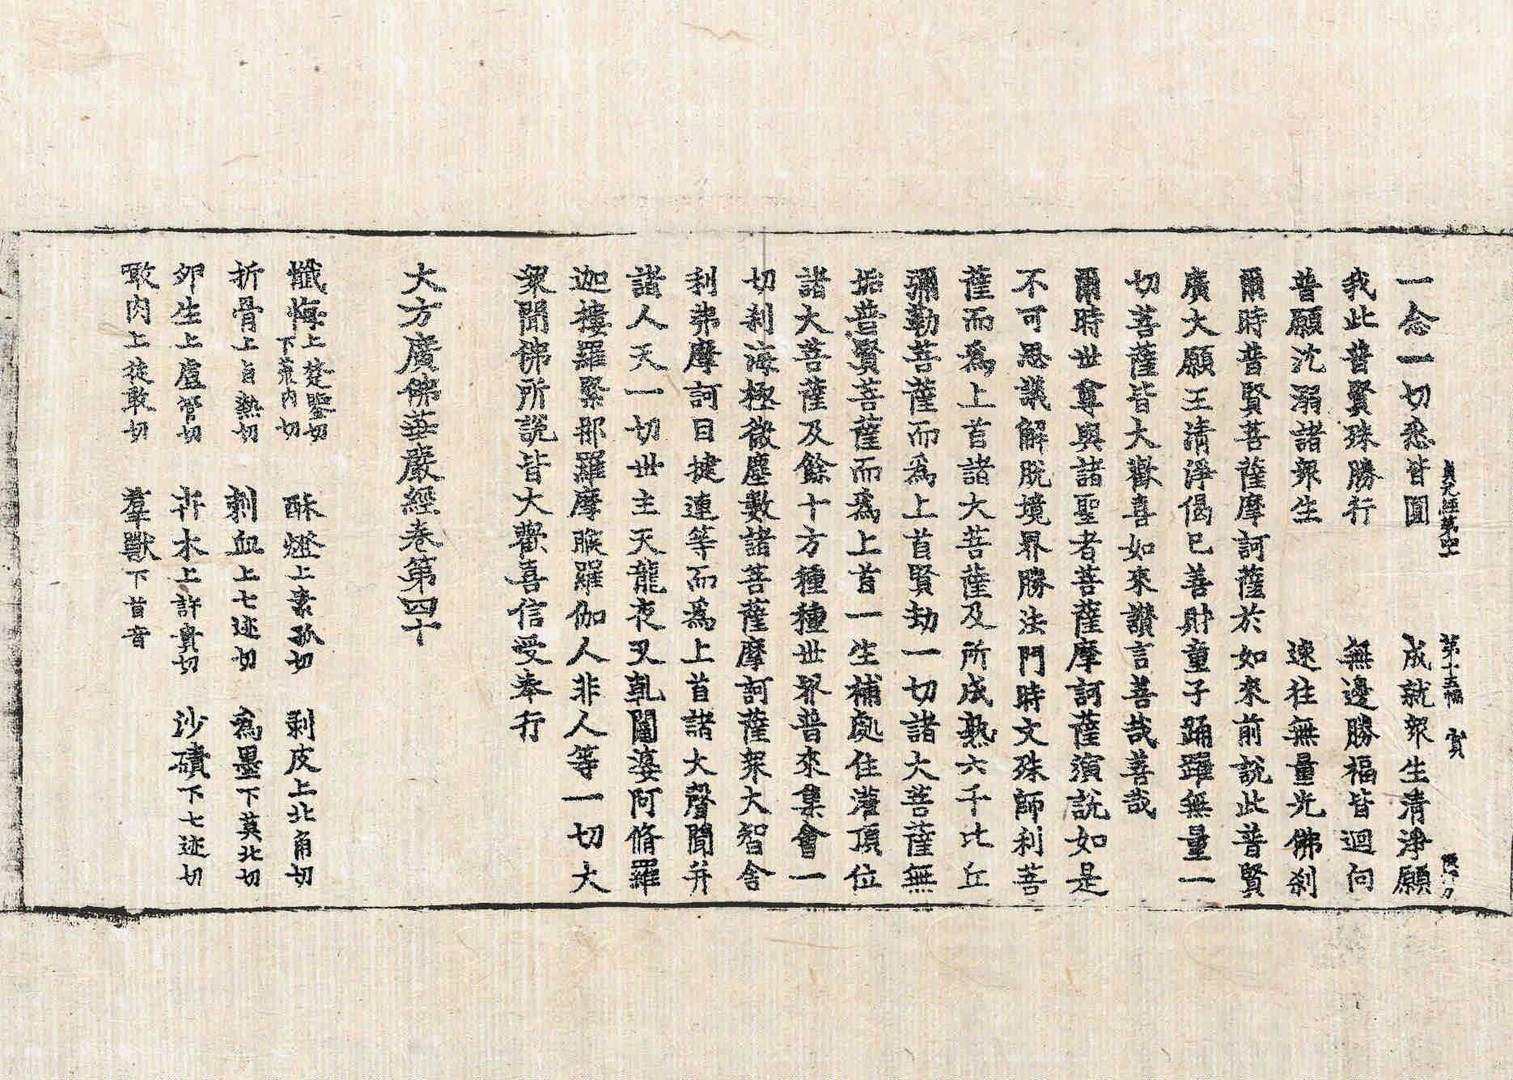 一念一切悉皆圓　成就衆生清淨願
貞元經第四十　第十五幅　寳
我此普賢殊勝行　無邊勝福皆迴向
普願沈溺諸衆生　速往無量光佛刹
爾時普賢菩薩摩訶薩於如來前說此普賢
廣大願王清淨偈已善財童子踊躍無量一
切菩薩皆大歡喜如來讃言善哉善哉
爾時世尊與諸聖者菩薩摩訶薩演說如是
不可思議解脫境界勝法門時文殊師利菩
薩而爲上首諸大菩薩及所成熟六千比丘
彌勒菩薩而爲上首賢劫一切諸大菩薩無
垢普賢菩薩而爲上首一生補處住灌頂位
諸大菩薩及餘十方種種世界普來集會一
切刹海極微塵數諸菩薩摩訶薩衆大智舍
利弗摩訶目揵連等而爲上首諸大聲聞并
諸人天一切世主天龍夜叉乾闥婆阿脩羅
迦樓羅緊那羅摩睺羅伽人非人等一切大
衆聞佛所說皆大歡喜信受奉行
大方廣佛華嚴經卷第四十
懺悔上楚鑒切下荒內切　酥燈上素孤切　剥皮上北角切
折骨上旨熱切　刺血上七迹切　爲墨下莫北切
卵生上盧管切　卉木上許貴切　沙磧下七迹切
噉肉上徒敢切　羣獸下首音